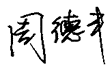 周德才